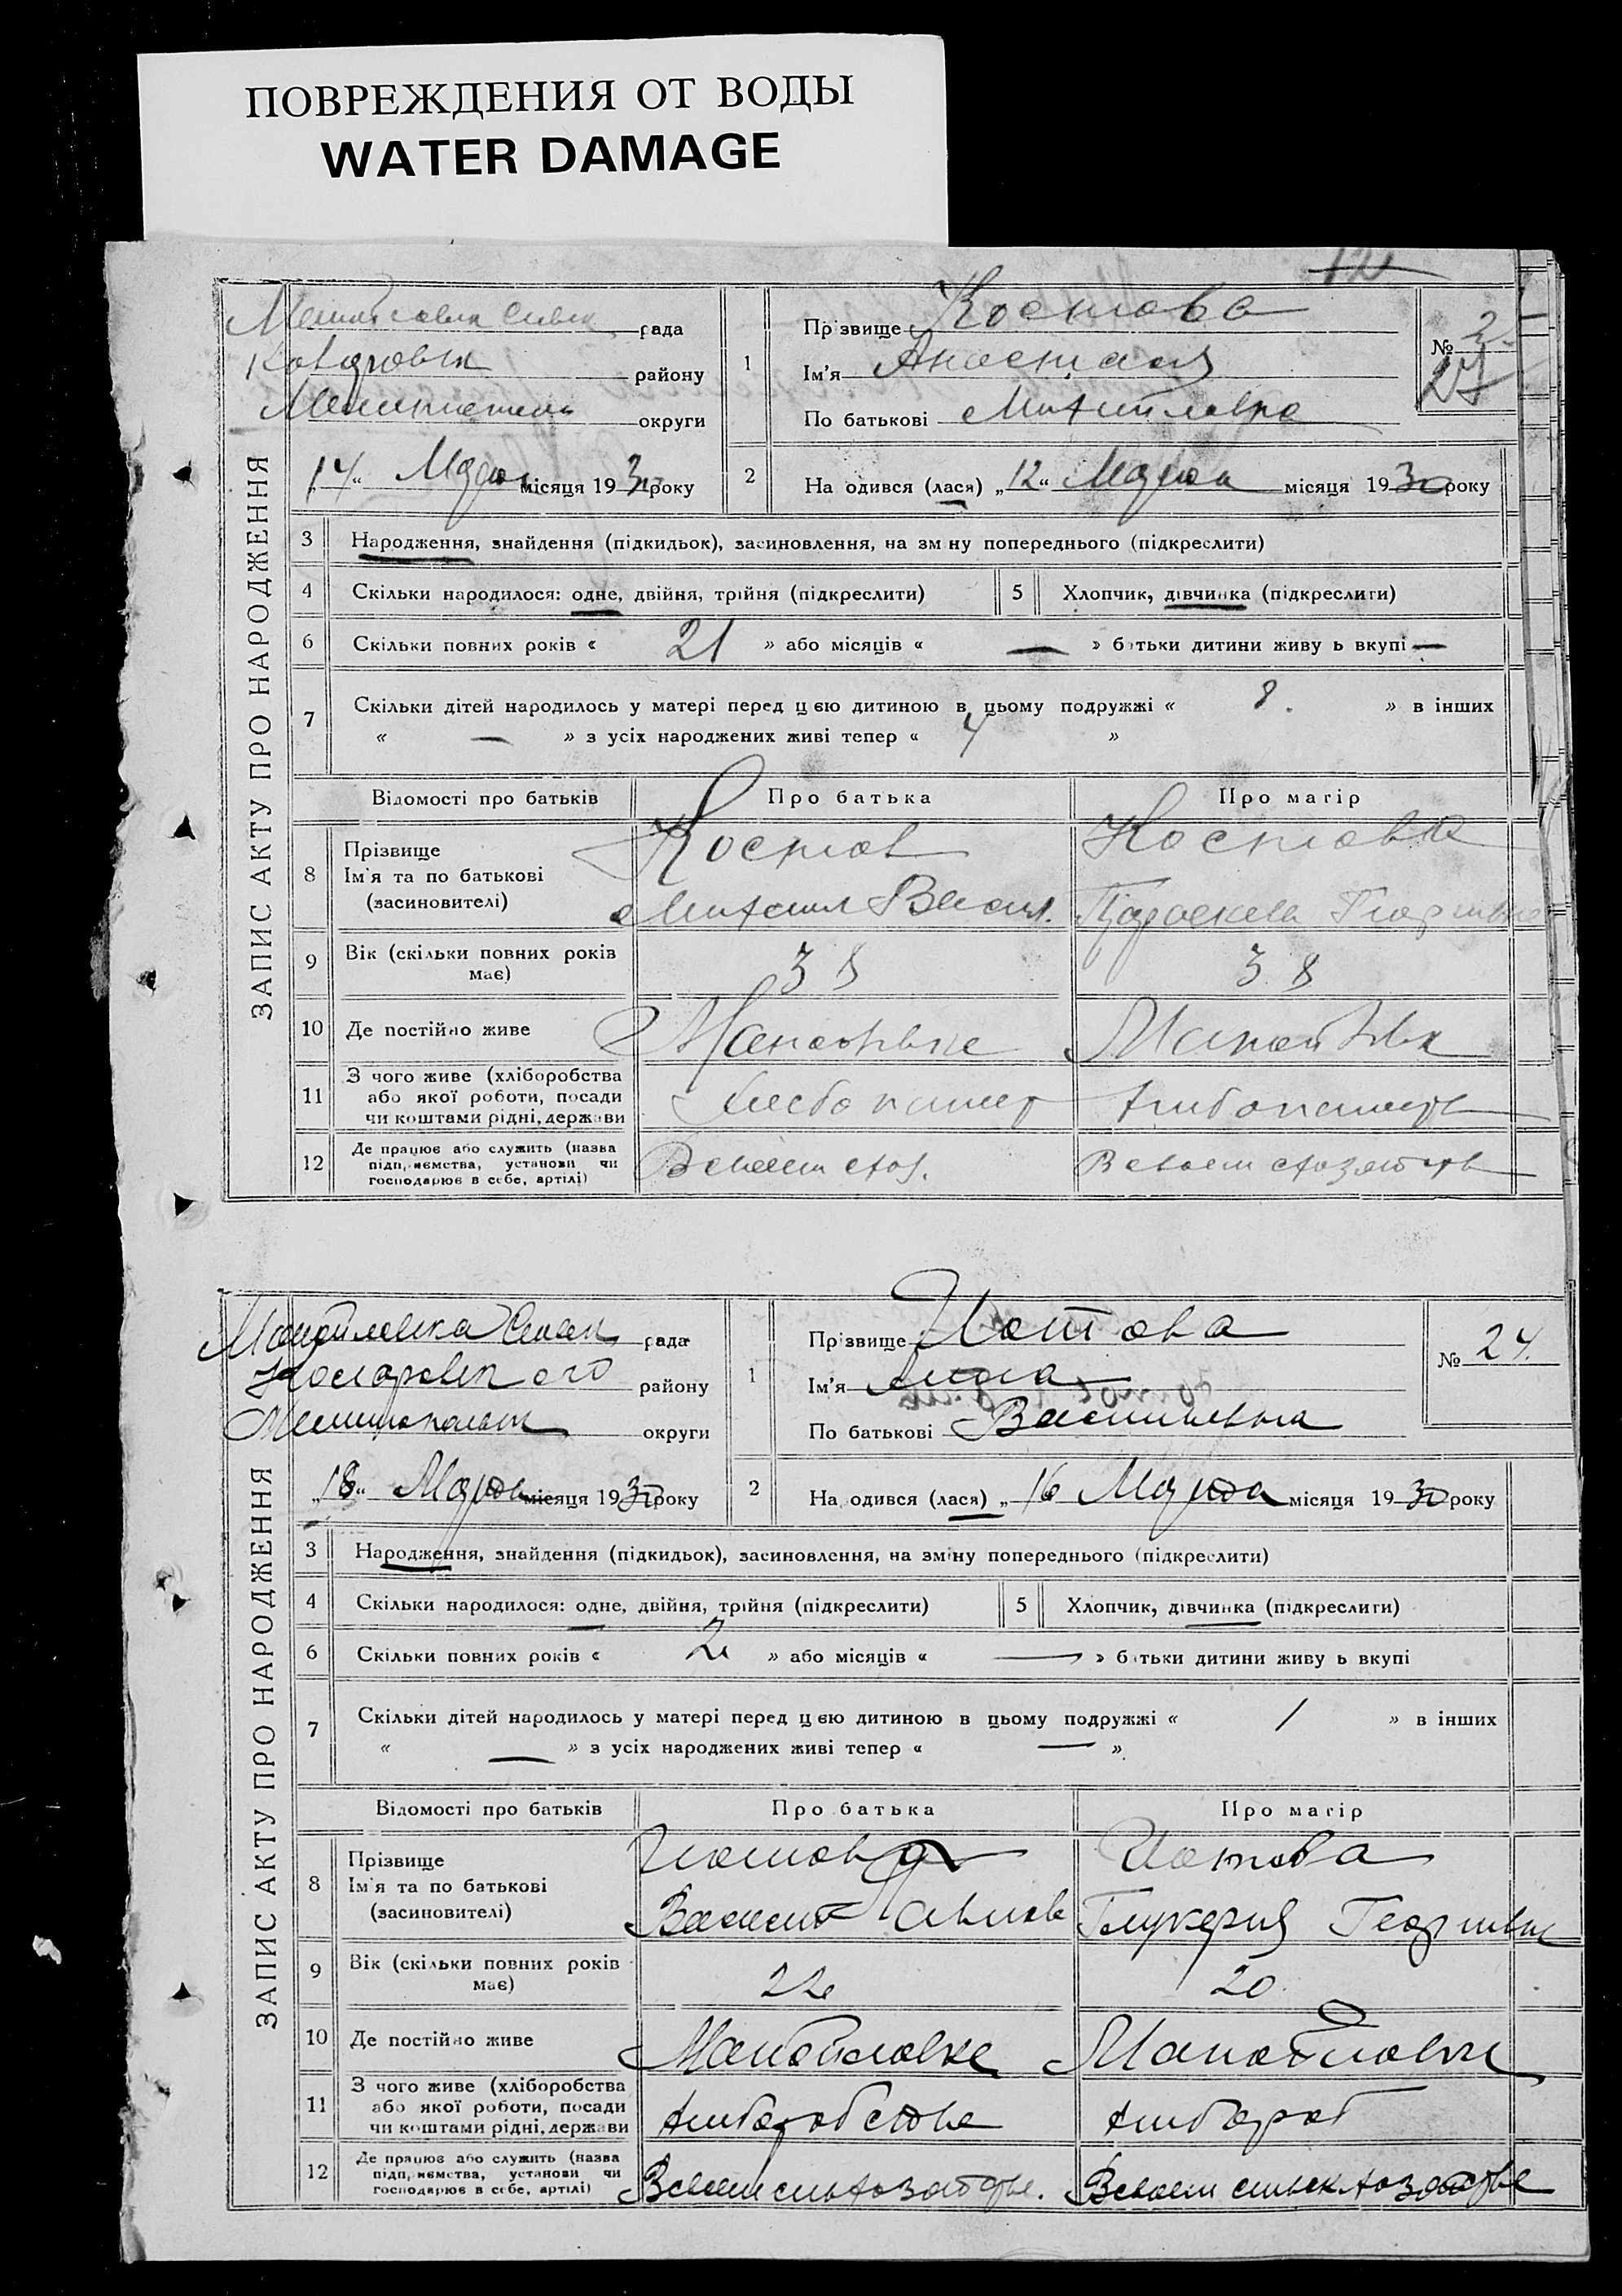 ПОВРЕЖДЕНИЯ ОТ ВОДЫ
WATER DAMAGE
12
ЗАПИС АКТУ ПРО НАРОДЖЕННЯ
рада
району
округи
„14“ Марта місяця 1930 року
1 Прізвище Костова
Ім'я Анастасия
По батькові Михайловна
№ 2
27
2 Народився (лася) „12“ Марта місяця 1930 року
3 Народження, знайдення (підкидьок), засиновлення, на зміну попереднього (підкреслити)
4 Скільки народилося: одне, двійня, трійня (підкреслити) 5 Хлопчик, дівчинка (підкреслити)
6 Скільки повних років « 21 » або місяців « — » батьки дитини живуть вкупі —
7 Скільки дітей народилось у матері перед цією дитиною в цьому подружжі « 8. » в інших
« — » з усіх народжених живі тепер « 4 »
Відомості про батьків Про батька Про матір
8 Прізвище
Ім'я та по батькові
(засиновителі)
Костов Костова
Михаил Васил. Параскева Георгиевна
9 Вік (скільки повних років має) 38 38
10 Де постійно живе
11 З чого живе (хліборобства
або якої роботи, посади
чи коштами рідні, держави
12 Де працює або служить (назва
підприємства, установи чи
господарює в себе, артілі)
В своем хоз. В своем хозяйстве
ЗАПИС АКТУ ПРО НАРОДЖЕННЯ
Манойловка рада
району
округи
„18“ Марта місяця 1930 року
1 Прізвище Иотова
Ім'я Анна
По батькові Васильевна
№ 24.
2 Народився (лася) „16 Марта місяця 1930 року
3 Народження, знайдення (підкидьок), засиновлення, на зміну попереднього (підкреслити)
4 Скільки народилося: одне, двійня, трійня (підкреслити) 5 Хлопчик, дівчинка (підкреслити)
6 Скільки повних років « 2 » або місяців « — » батьки дитини живуть вкупі
7 Скільки дітей народилось у матері перед цією дитиною в цьому подружжі « 1 » в інших
« — » з усіх народжених живі тепер « — »
Відомості про батьків Про батька Про матір
8 Прізвище
Ім'я та по батькові
(засиновителі)
Иотов Иотова
Василий Глукерия Георгиевна
9 Вік (скільки повних років має) 22 20
10 Де постійно живе Манойловке Манойловки
11 З чого живе (хліборобства
або якої роботи, посади
чи коштами рідні, держави
Хлиборобство Хлибороб
12 Де працює або служить (назва
підприємства, установи чи
господарює в себе, артілі)
В своем сильхозяйстве. В своем сильхозяйстве